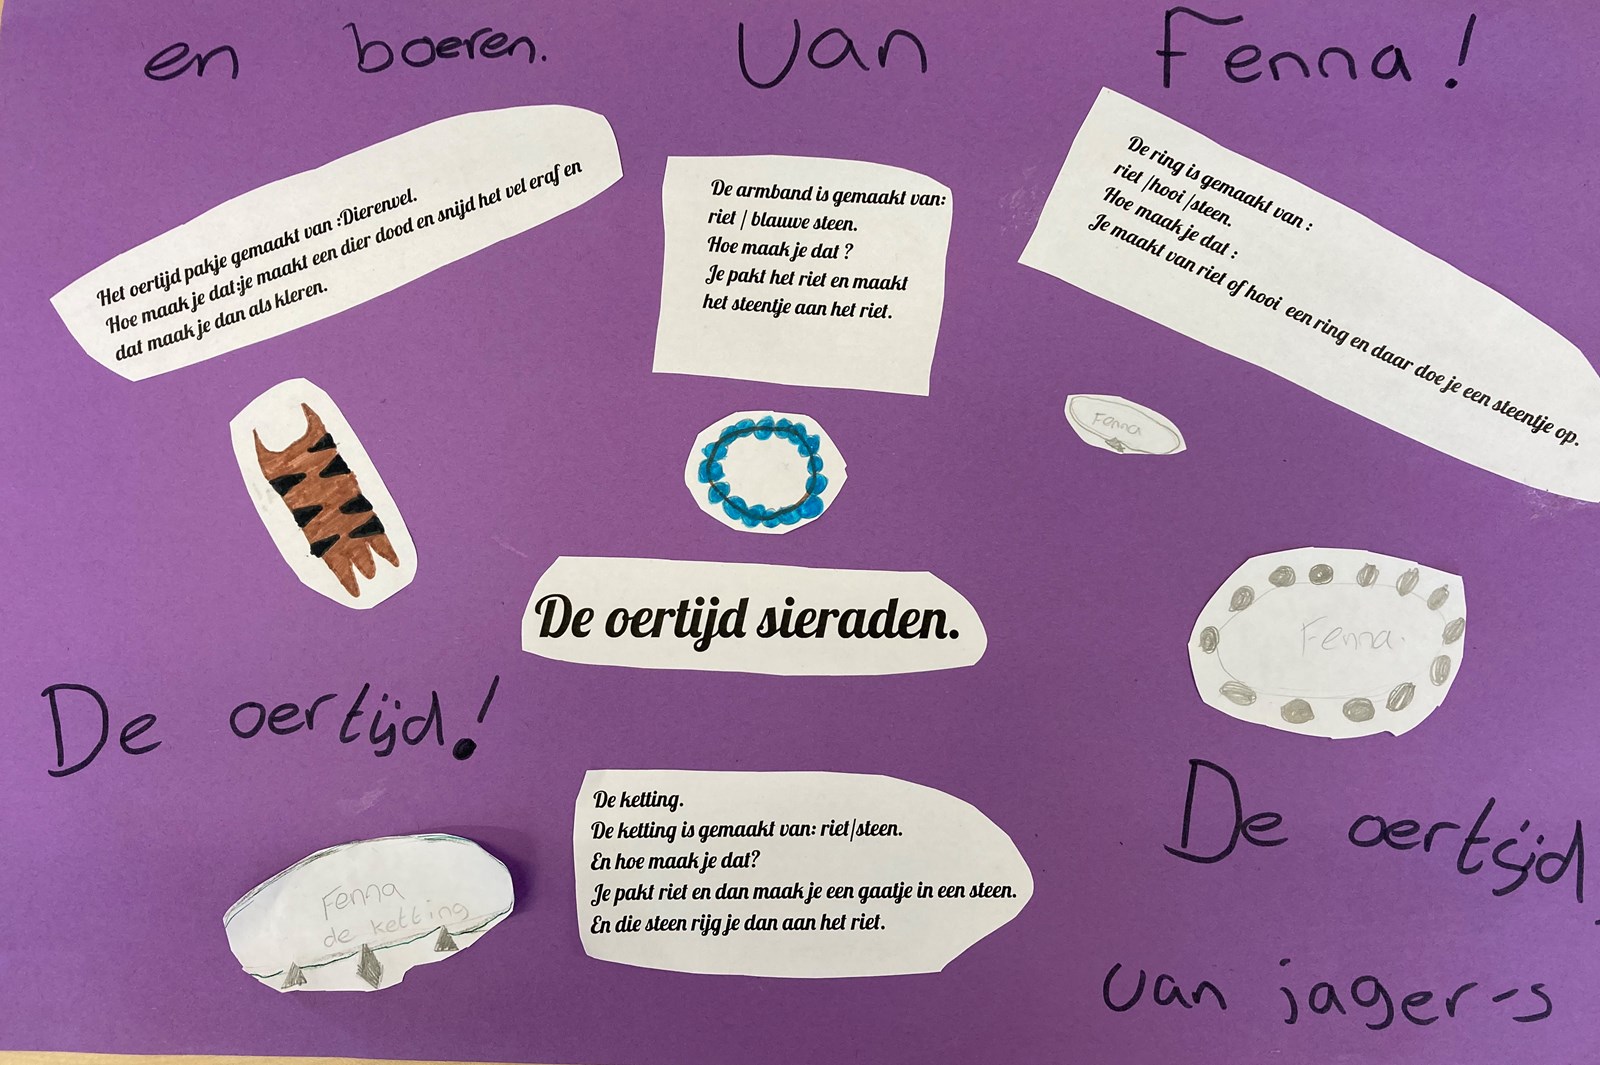 en boeren. van Fenna!
Het oertijd pakje gemaakt van :Dierenvel.
Hoe maak je dat:je maakt een dier dood en snijd het vel eraf en
dat maak je dan als kleren.
De armband is gemaakt van:
riet / blauwe steen.
Hoe maak je dat ?
Je pakt het riet en maakt
het steentje aan het riet.
De ring is gemaakt van :
riet /hooi /steen.
Hoe maak je dat :
Je maakt van riet of hooi een ring en daar doe je een steentje op.
Fenna
De oertijd sieraden.
Fenna.
De oertijd!
Fenna
de ketting
De ketting.
De ketting is gemaakt van: riet/steen.
En hoe maak je dat?
Je pakt riet en dan maak je een gaatje in een steen.
En die steen rijg je dan aan het riet.
De oertijd
van jager-s